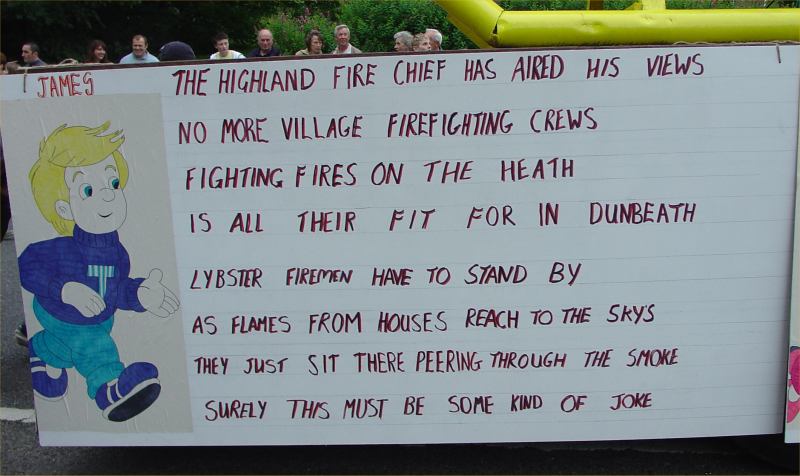 JAMES
THE HIGHLAND FIRE CHIEF HAS AIRED HIS VIEWS
NO MORE VILLAGE FIREFIGHTING CREWS
FIGHTING FIRES ON THE HEATH
IS ALL THEIR FIT FOR IN DUNBEATH
LYBSTER FIREMEN HAVE TO STAND BY
AS FLAMES FROM HOUSES REACH TO THE SKY'S
THEY JUST SIT THERE PEERING THROUGH THE SMOKE
SURELY THIS MUST BE SOME KIND OF JOKE